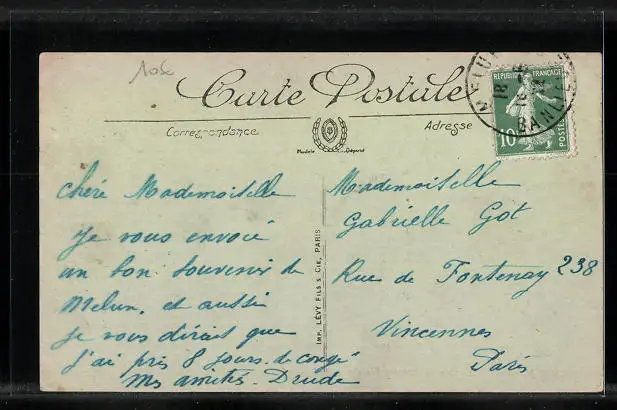 Carte Postale
Correspondance
Adresse
Modèle Déposé
RÉPUBLIQUE FRANÇAISE
10
POSTES
IMP. LÉVY FILS & CIE, PARIS
chère Mademoiselle
Je vous envoie
un bon souvenir de
Melun. et aussi
je vous dirait que
j'ai pris 8 jours de congé
Mes amitiés
Mademoiselle
Gabrielle Got
Rue de Fontenay 238
Vincennes
Paris